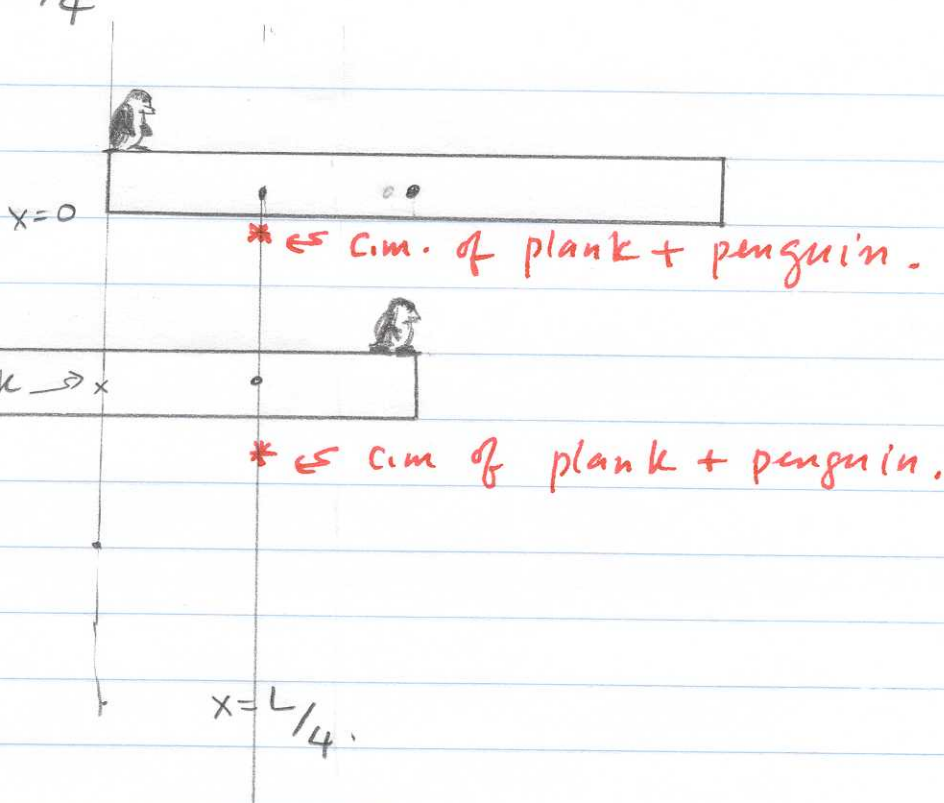 4
x=0
* ⇐ c.m. of plank + penguin.
k → x
* ⇐ c.m of plank + penguin.
x=L/4.